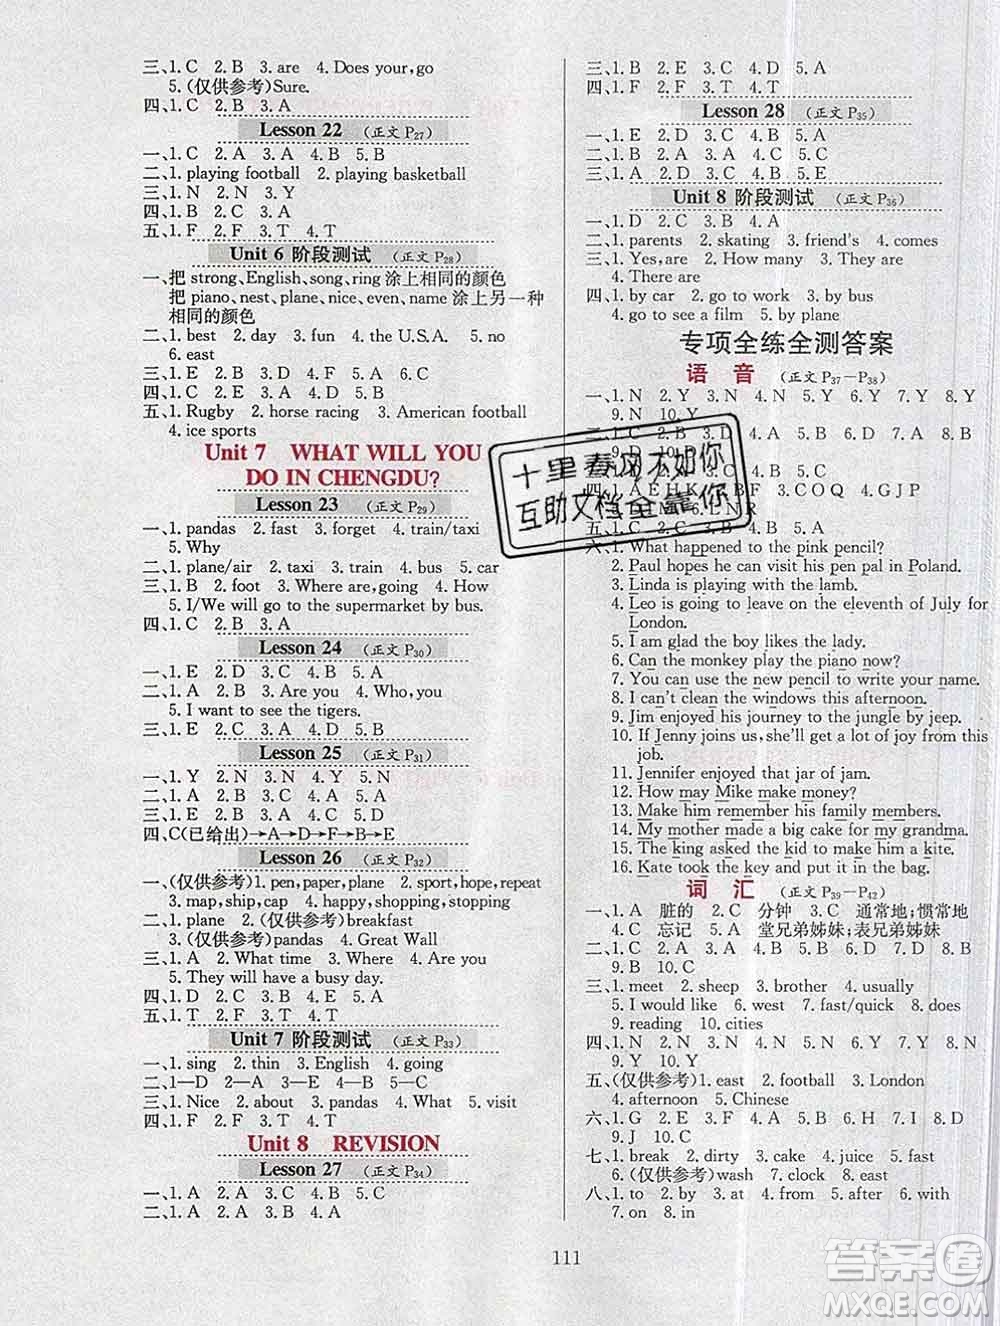 三、1. C　2. B　3. are　4. Does your, go
5. (仅供参考)Sure.
四、1. C　2. B　3. A
Lesson 22　(正文 P27)
一、1. C　2. A　3. A　4. B　5. B
二、1. playing football　2. playing basketball
三、1. N　2. N　3. Y
四、1. B　2. C　3. A
五、1. F　2. F　3. T　4. T
Unit 6 阶段测试　(正文 P28)
一、把 strong、English、song、ring 涂上相同的颜色
把 piano、nest、plane、nice、even、name 涂上另一种
相同的颜色
二、1. best　2. day　3. fun　4. the U.S.A.　5. no
6. east
三、1. E　2. B　3. D　4. C　5. A
四、1. B　2. B　3. C　4. B　5. C
五、1. Rugby　2. horse racing　3. American football
4. ice sports
Unit 7　WHAT WILL YOU
DO IN CHENGDU?
Lesson 23　(正文 P29)
一、1. pandas　2. fast　3. forget　4. train/taxi
5. Why
二、1. plane/air　2. taxi　3. train　4. bus　5. car
三、1. B　2. foot　3. Where are, going　4. How
5. I/We will go to the supermarket by bus.
四、1. C　2. B　3. A
Lesson 24　(正文 P30)
一、1. B　2. D　3. C　4. B　5. A
二、1. A　2. B　3. Are you　4. Who, you
5. I want to see the tigers.
三、1. E　2. C　3. A　4. D　5. B
Lesson 25　(正文 P31)
一、1. Y　2. N　3. N　4. Y　5. N
二、1. C　2. B　3. C　4. A　5. A
三、1. E　2. D　3. C　4. B　5. A
四、C(已给出)→A→D→F→B→E
Lesson 26　(正文 P32)
一、(仅供参考)1. pen, paper, plane　2. sport, hope, repeat
3. map, ship, cap　4. happy, shopping, stopping
二、1. plane　2. (仅供参考)breakfast
3. (仅供参考)pandas　4. Great Wall
三、1. A　2. What time　3. Where　4. B
5. They will have a busy day.
四、1. D　2. C　3. B　4. E　5. A
五、1. T　2. F　3. T　4. T
Unit 7 阶段测试　(正文 P33)
一、1. sing　2. thin　3. English　4. going
二、1—D　2—A　3—E　4—B　5—C
三、1. Nice　2. about　3. pandas　4. What　5. visit
四、1. F　2. F　3. T　4. T
Unit 8　REVISION
Lesson 27　(正文 P34)
一、1. A　2. A　3. B　4. B　5. C
二、1. A　2. B　3. B　4. A
三、1. B　2. E　3. C　4. D　5. A
四、1. F　2. F　3. T　4. T
Lesson 28　(正文 P35)
一、1. E　2. D　3. C　4. B　5. A
二、1. B　2. A　3. C　4. C　5. B
三、1. A　2. D　3. C　4. B　5. E
Unit 8 阶段测试　(正文 P36)
一、1. D　2. C　3. B　4. A
二、1. parents　2. skating　3. friend's　4. comes
三、1. Yes, are　2. How many　3. They are
4. There are
四、1. by car　2. go to work　3. by bus
4. go to see a film　5. by plane
专项全练全测答案
语　音　(正文 P37—P38)
一、1. N　2. Y　3. N　4. N　5. Y　6. Y　7. Y　8. Y
9. N　10. Y
二、1. C
9. D
五、1. C　2. C
六、1. What happened to the pink pencil?
2. Paul hopes he can visit his pen pal in Poland.
3. Linda is playing with the lamb.
4. Leo is going to leave on the eleventh of July for
London.
5. I am glad the boy likes the lady.
6. Can the monkey play the piano now?
7. You can use the new pencil to write your name.
8. I can't clean the windows this afternoon.
9. Jim enjoyed his journey to the jungle by jeep.
10. If Jenny joins us, she'll get a lot of joy from this
job.
11. Jennifer enjoyed that jar of jam.
12. How may Mike make money?
13. Make him remember his family members.
14. My mother made a big cake for my grandma.
15. The king asked the kid to make him a kite.
16. Kate took the key and put it in the bag.
词　汇　(正文 P39—P42)
一、1. A　脏的　2. C　分钟　3. C　通常地;惯常地
4. C　忘记　5. A　堂兄弟姊妹;表兄弟姊妹
二、1. C　2. C　3. A　4. B　5. D　6. A　7. D　8. B
9. B　10. C
三、1. meet　2. sheep　3. brother　4. usually
5. I would like　6. west　7. fast/quick　8. does
9. reading　10. cities
四、1. N　2. N　3. N　4. Y　5. N　6. Y　7. Y　8. N
9. Y　10. Y
五、(仅供参考)1. east　2. football　3. London
4. afternoon　5. Chinese
六、1. G　2. E　3. F　4. A　5. B　6. H　7. I　8. D
9. J　10. C
七、1. break　2. dirty　3. cake　4. juice　5. fast
6. (仅供参考)wash　7. clock　8. east
八、1. to　2. by　3. at　4. from　5. after　6. with
7. on　8. in
111
十里春风不如你
互助文档全靠你
答案圈
MXQE.COM